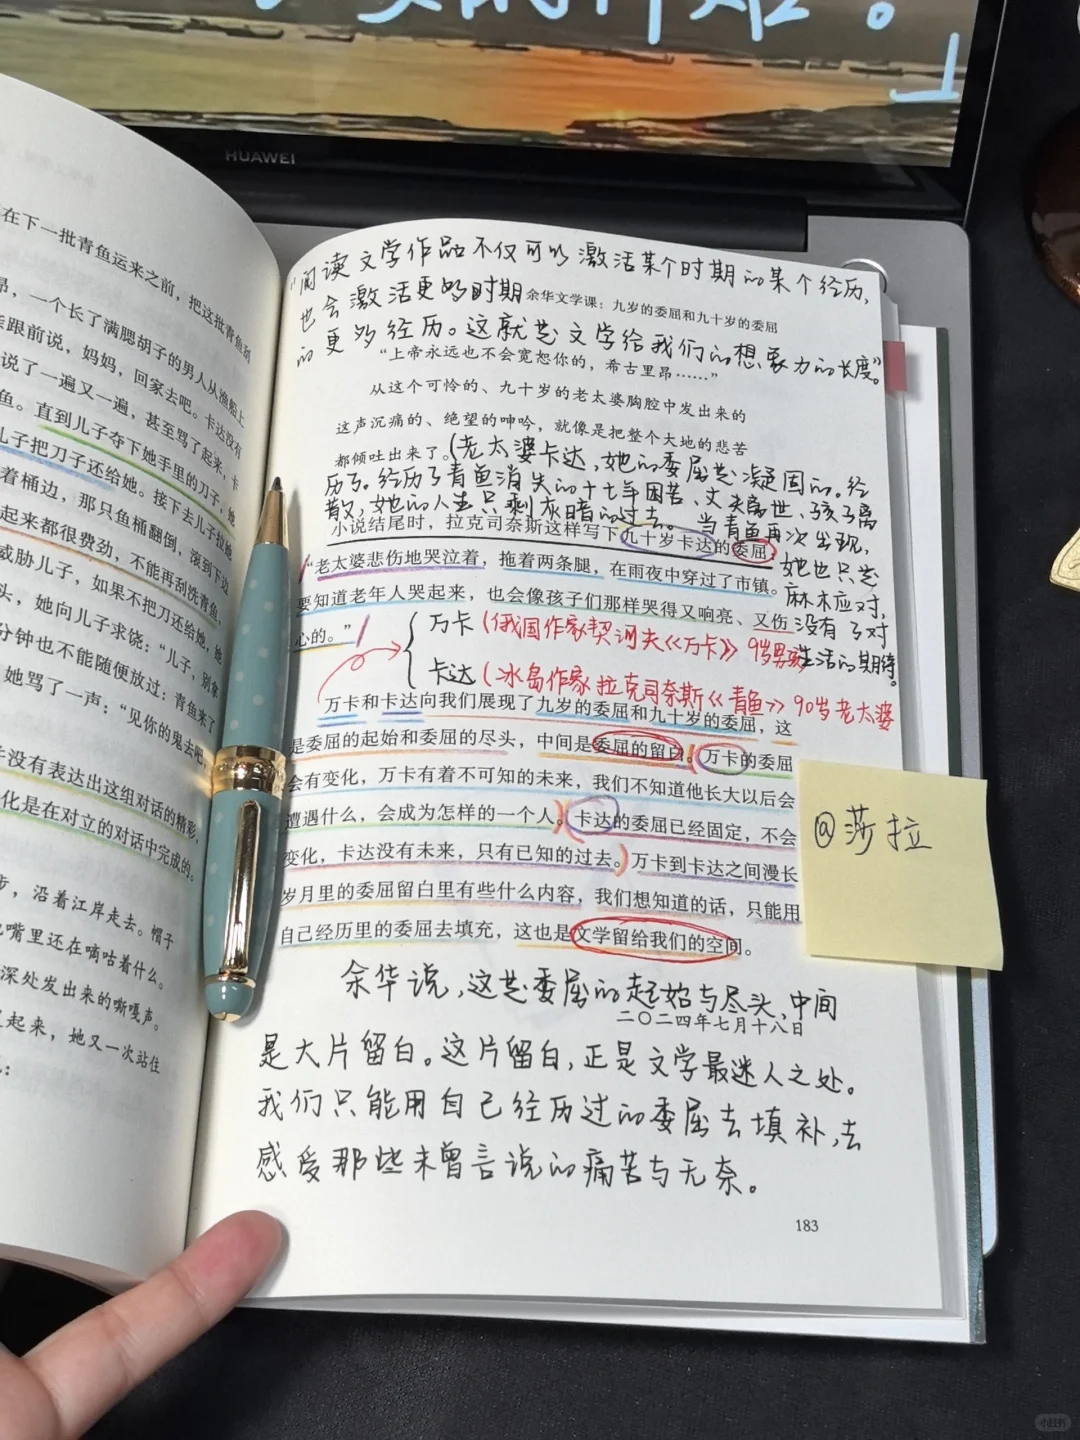 HUAWEI
在下一批青鱼运来之前，把这批青鱼刮
昂，一个长了满腮胡子的男人从渔船上
跟前说，妈妈，回家去吧。卡达没有
说了一遍又一遍，甚至骂了起来，卡
鱼。直到儿子夺下她手里的刀子，她
儿子把刀子还给她。接下去儿子拉她
着桶边，那只鱼桶翻倒，滚到下边
起来都很费劲，不能再刮洗青鱼，
威胁儿子，如果不把刀还给她，她
头，她向儿子求饶：“儿子，别拿
分钟也不能随便放过：青鱼来了
她骂了一声：“见你的鬼去吧，
没有表达出这组对话的精彩，
化是在对立的对话中完成的。
步，沿着江岸走去。帽子
嘴里还在嘀咕着什么。
深处发出来的嘶嘎声。
起来，她又一次站住
“阅读文学作品不仅可以激活某个时期的某个经历，
也会激活更多时期
余华文学课：九岁的委屈和九十岁的委屈
的更多经历。这就是文学给我们的想象力的长度”。
“上帝永远也不会宽恕你的，希古里昂……”
从这个可怜的、九十岁的老太婆胸腔中发出来的
这声沉痛的、绝望的呻吟，就像是把整个大地的悲苦
都倾吐出来了。
（老太婆卡达，她的委屈是凝固的。经
历了。经历了青鱼消失的十七年困苦、丈夫离世、孩子离
散，她的人生只剩灰暗的过去。当青鱼再次出现，
她也只是
麻木应对，
没有了对
生活的期待。
小说结尾时，拉克司奈斯这样写下九十岁卡达的委屈：
“老太婆悲伤地哭泣着，拖着两条腿，在雨夜中穿过了市镇。
要知道老年人哭起来，也会像孩子们那样哭得又响亮、又伤
心的。”
万卡（俄国作家契诃夫《万卡》9岁男孩
卡达（冰岛作家拉克司奈斯《青鱼》90岁老太婆
万卡和卡达向我们展现了九岁的委屈和九十岁的委屈，这
是委屈的起始和委屈的尽头，中间是委屈的留白。万卡的委屈
会有变化，万卡有着不可知的未来，我们不知道他长大以后会
遭遇什么，会成为怎样的一个人。卡达的委屈已经固定，不会
变化，卡达没有未来，只有已知的过去。万卡到卡达之间漫长
岁月里的委屈留白里有些什么内容，我们想知道的话，只能用
自己经历里的委屈去填充，这也是文学留给我们的空间。
@莎拉
余华说，这是委屈的起始与尽头，中间
二〇二四年七月十八日
是大片留白。这片留白，正是文学最迷人之处。
我们只能用自己经历过的委屈去填补，去
感受那些未曾言说的痛苦与无奈。
183
小红书